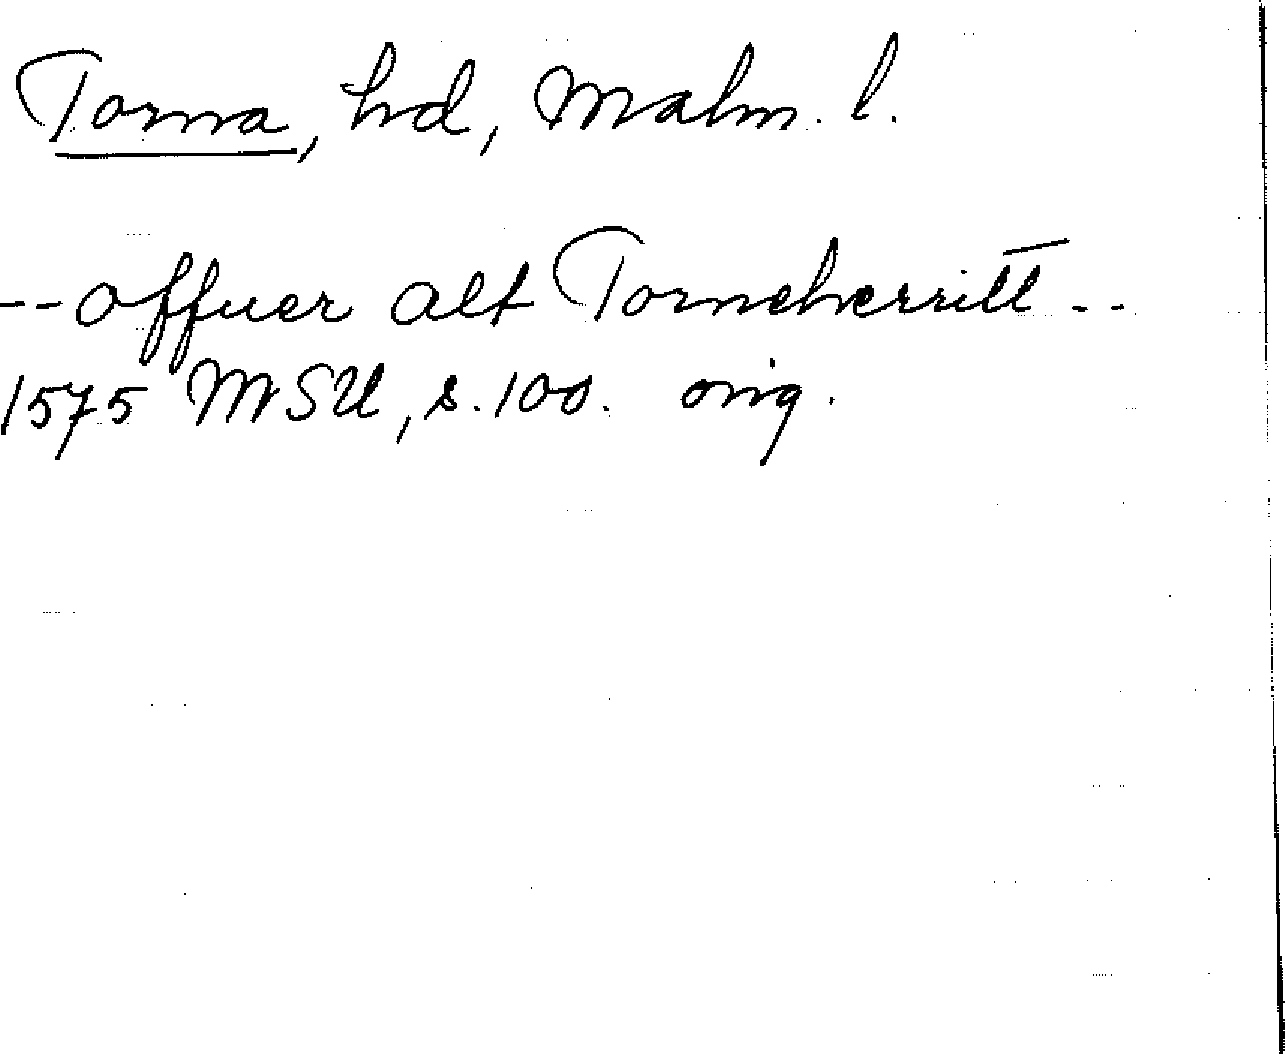 Torna, hd, Malm. l.
--offuer alt Torneherritt--
1575 MSU, s. 100. orig.